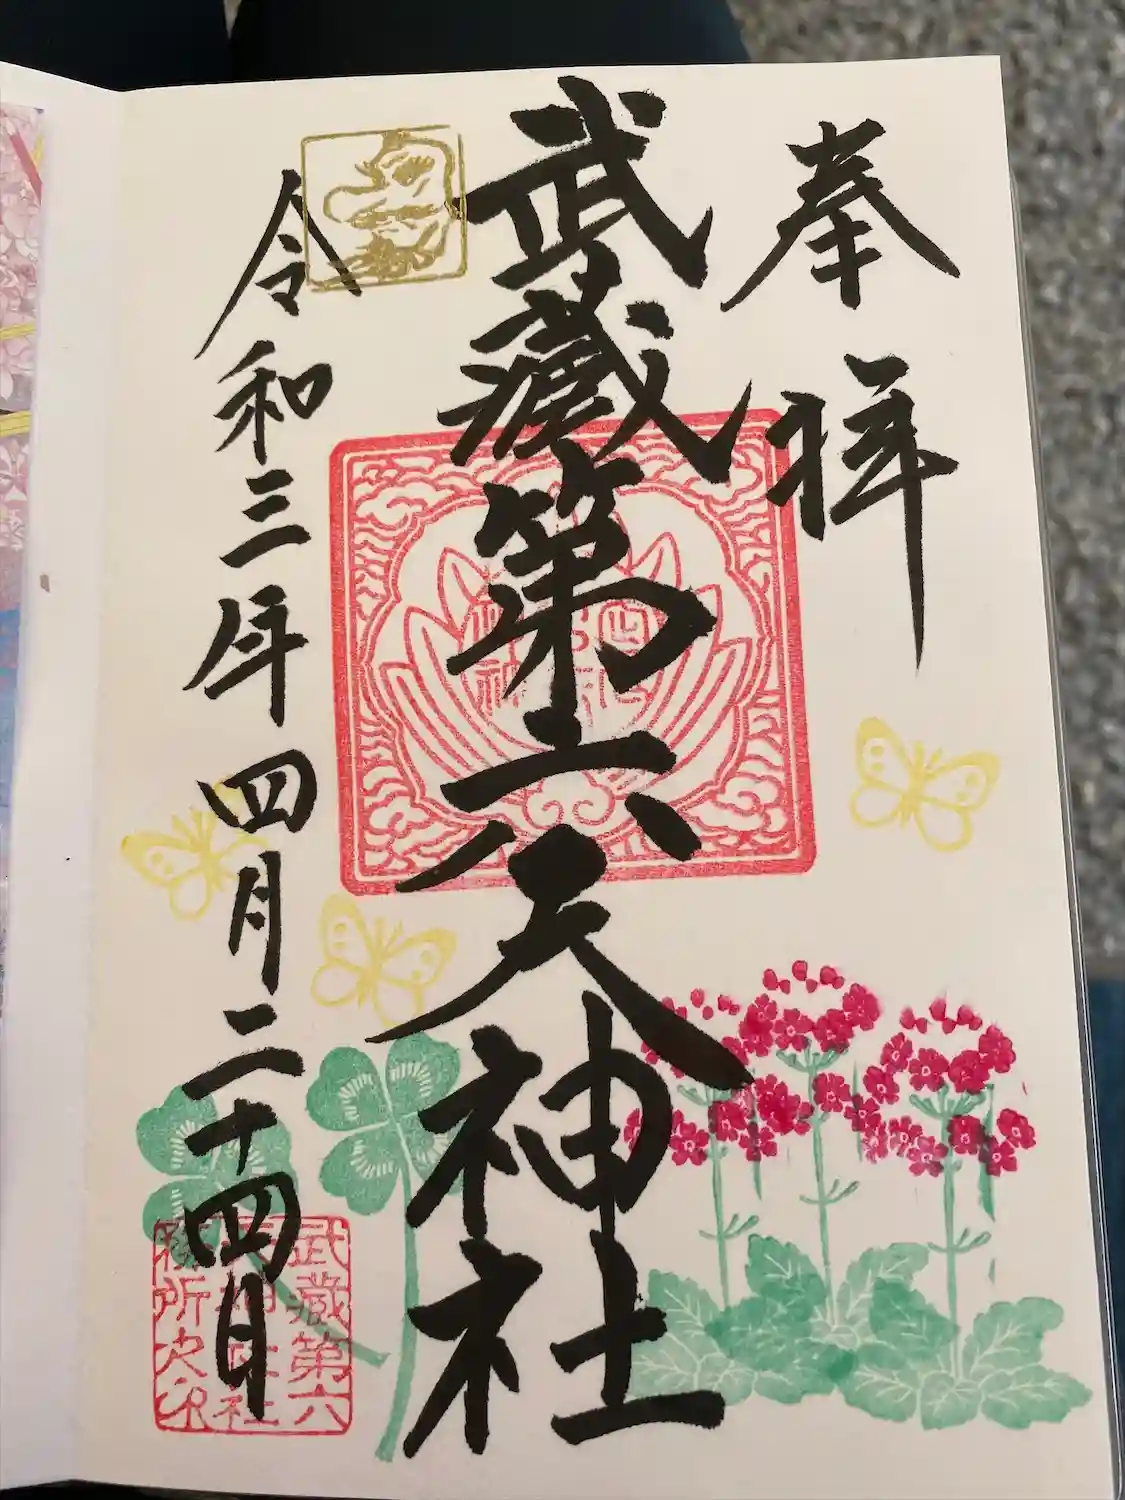 奉拝
武蔵第六天神社
令和三年四月二十四日
武蔵第六
天神社
務所之印